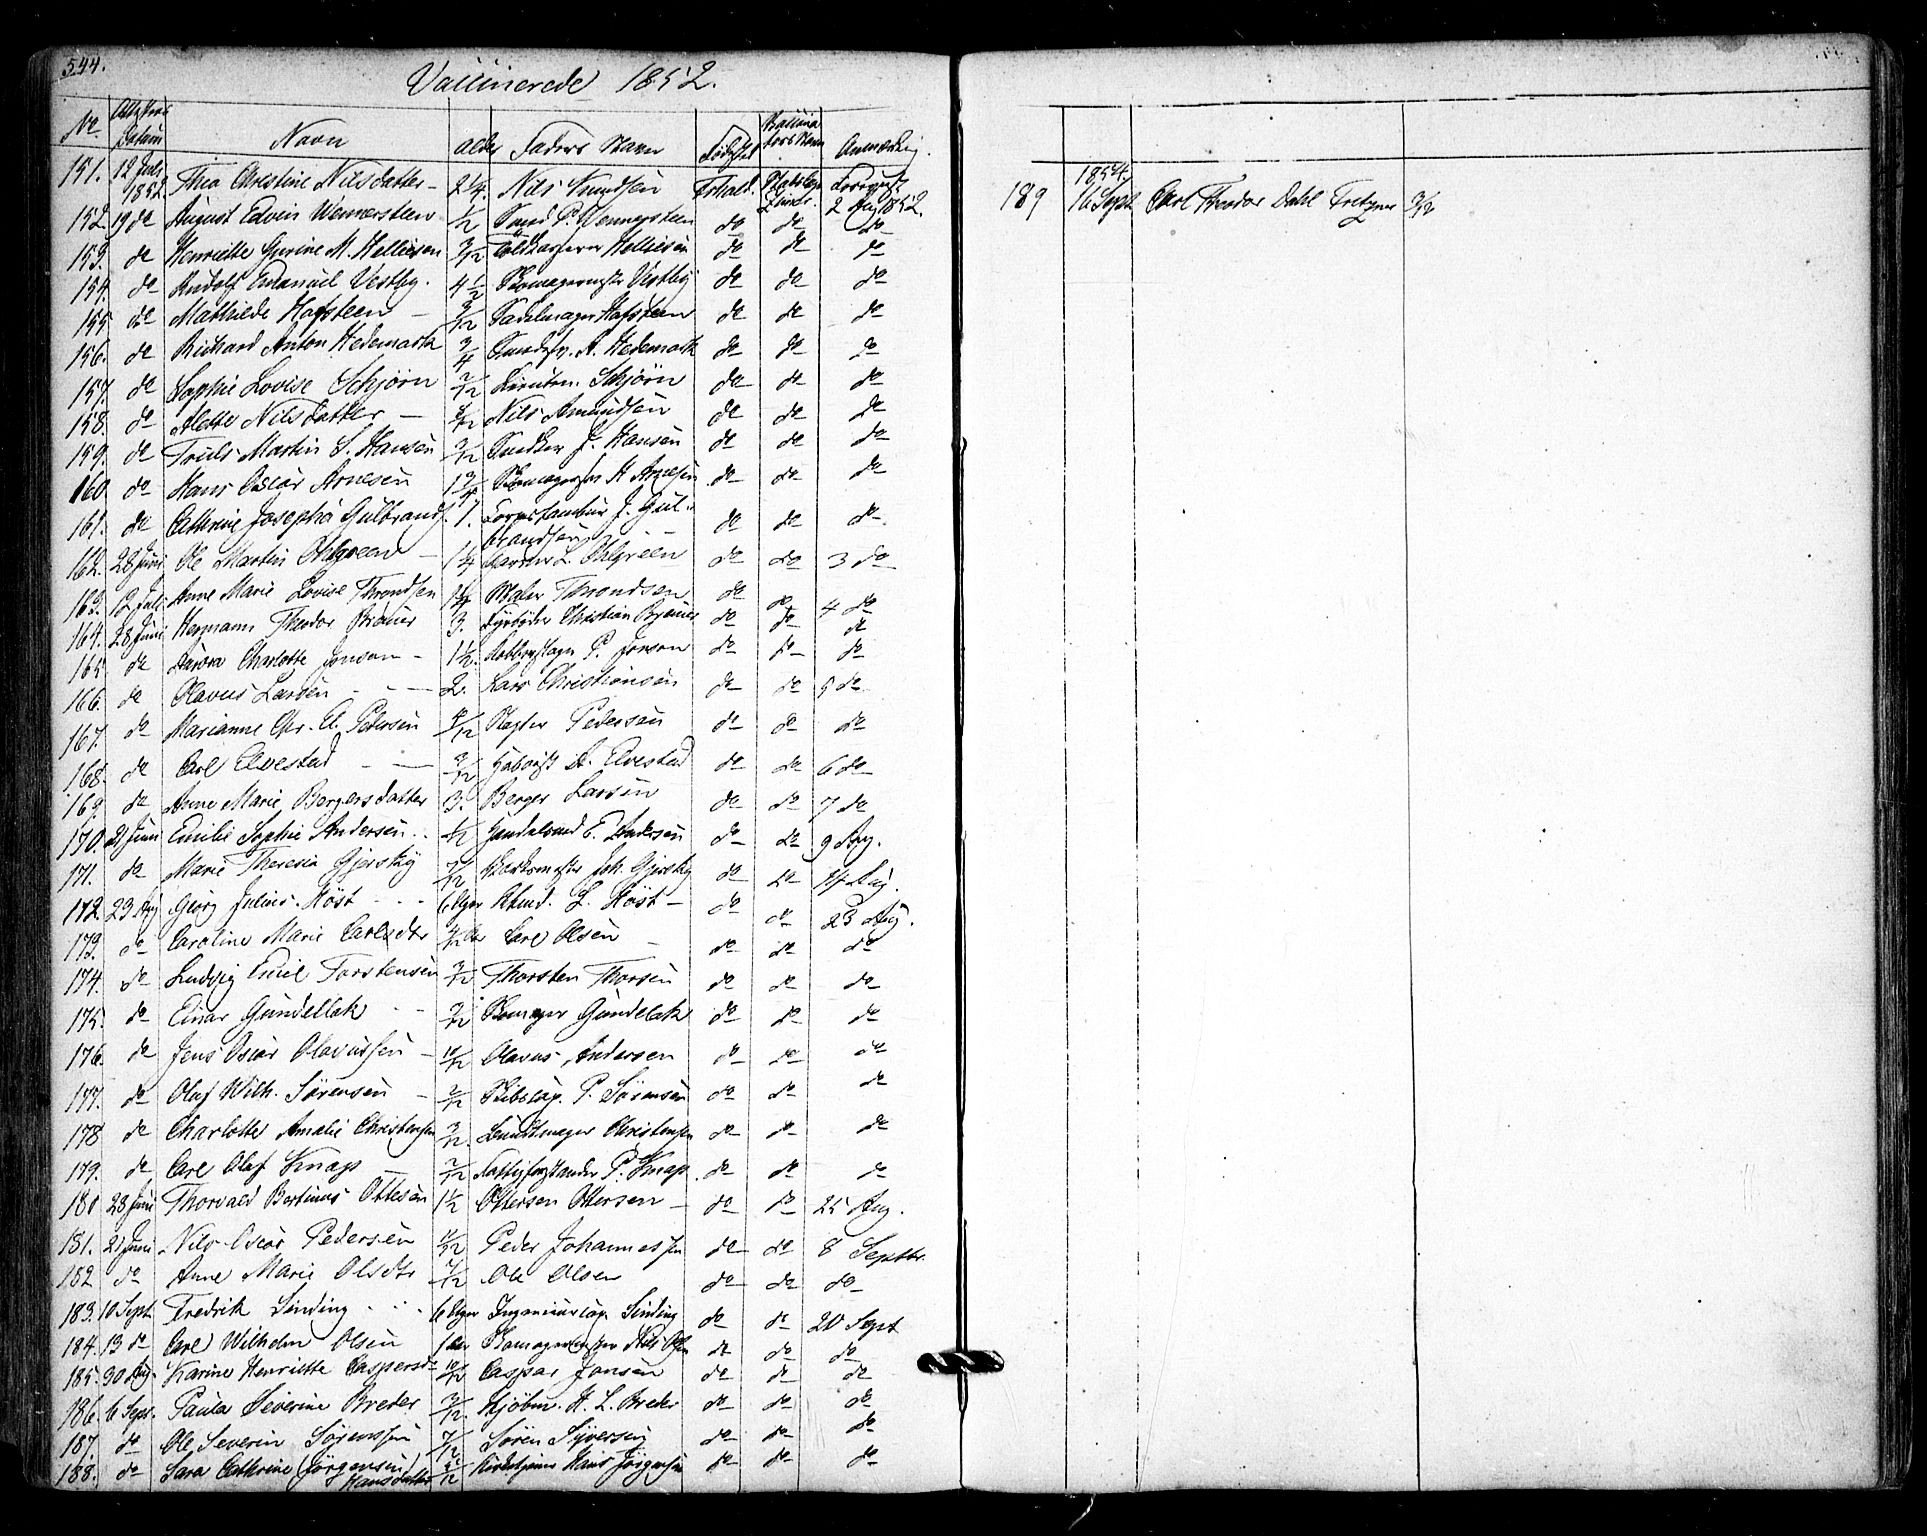 544.
Vaccinerede 1852.
No. Attestens Datum Navn alder Faders Navn Fødested Vaccina tors Navn Anmærkng.
151. 12 Juli 1852. Thea Christine Nilsdatter - 2 1/4. Nils Knudsen Frhald. 2 Aug 1852.
152. 19 do August Edvin Wennersteen 1/2 P. Wennersteen do do do
153. do Henriette Gurine M. Kelliesen 3/12 Kelliesen do do do
154. do Rudolf Emanuel Vestby. 4 1/2 Skomagermstr Vestby do do do
155 do Mathilde Hafsteen - 3/12 Sadelmager Hafsteen do do do
156. do Richard Anton Hedemark 3/4 A. Hedemark do do do
157. do Sophie Lovise Schjörn 2/12 Lieutn. Schjörn do do do
158. do Alette Nilsdatter - 2/12 Nils Amundsen do do do
159. do Truls Martin S. Hansen 3/12 Snedker J. Hansen do do do
160 do Hans Oscar Arnesen Skomagersv. A Arnesen do do do
161. do Cathrine Josepha Gulbrands. 1. Corpstambur J. Gul-
brandsen - do do do
162. 28 Juni Ole Martin Ohlgreen - 1 1/4 Garver L. Ohlgreen do do 3 do
163. 12 Juli Anne Marie Lovise Throndsen 1 1/4 Maler Throndsen do do 4 do
164. 28 Juni Hermann Theodor Bräuer 3. Fyrböder Christian Bräuer do do do
165 do Aurora Charlotte Jonson - 1 1/2. P. Jonson do do do
166. do Olavus Larsen - - 2. Lars Christiansen do do 5 do
167. do Marianne Chr. El. Pedersen 8/12 Slagter Pedersen do do do
168. do Carl Elvestad - - 3/12 A. Elvestad do do 6 do
169. do Anne Marie Bergersdatter 3. Berger Larsen do do 7 do
170. 21 Juni Emilie Sophie Andersen. Handelsmd E. Andersen do do 9 Aug.
171. do Marie Theresia Gjersköy 7/12 Joh. Gjersköy do do 14 Aug.
172. 23 Aug Georg Julius Höst - - 6 Uger L. Höst - do do 23 Aug.
173. do Caroline Marie Carlsdtr Carl Olsen - do do do
174. do Ludvig Emil Torstensen 3/12 Thorsten Thorsen do do do
175. do Einar Gundellak - 2/12 Skomager Gundelak do do do
176. do Jens Oscar Olavussen - 10/12 Olavus Andersen do do do
177. do Olaf Wilh. Sörensen - 2/12 Skibscap. P. Sörensen do do do
178 do Charlotte Amalie Christensen 3/12. Buntmager Christensen do do do
179. do Carl Olaf Knap - 2/12 Fattigforstander P. Knap. do do do
180 28 Juni Thorvald Bertinius Ottesen 1 1/2 Ottersen Ottersen - do do 25 Aug.
181. 21 Juni Nils Oscar Pedersen 11/12 Peder Johannessen do do 8 Septbr.
182 do Anne Marie Olsdtr 7/12 Ole Olsen do do do
183. 10 Sept. Fredrik Sinding - - 6 Uger Ingenieurcap. Sinding do do 20 Sept
184. 13 do Carl Wilhelm Olsen 1 Aar Nils Olsen do do do
185. 30 Aug. Karine Henriette Caspersdr 10/12 Caspar Jonsen do do do
186. 6 Sept. Paula Severine Breder 3/12. Kjöbm. H. L. Breder do do do
187. do Ole Severin Sörenssen 7/12 Sören Syversen do do do
188. do Sara Cathrine (Jörgensen) Hansdatter Kirketjener Hans Jörgensen do do do
1854.
189 16 Sept Carl Theodor Dahl Fretzner 3/12